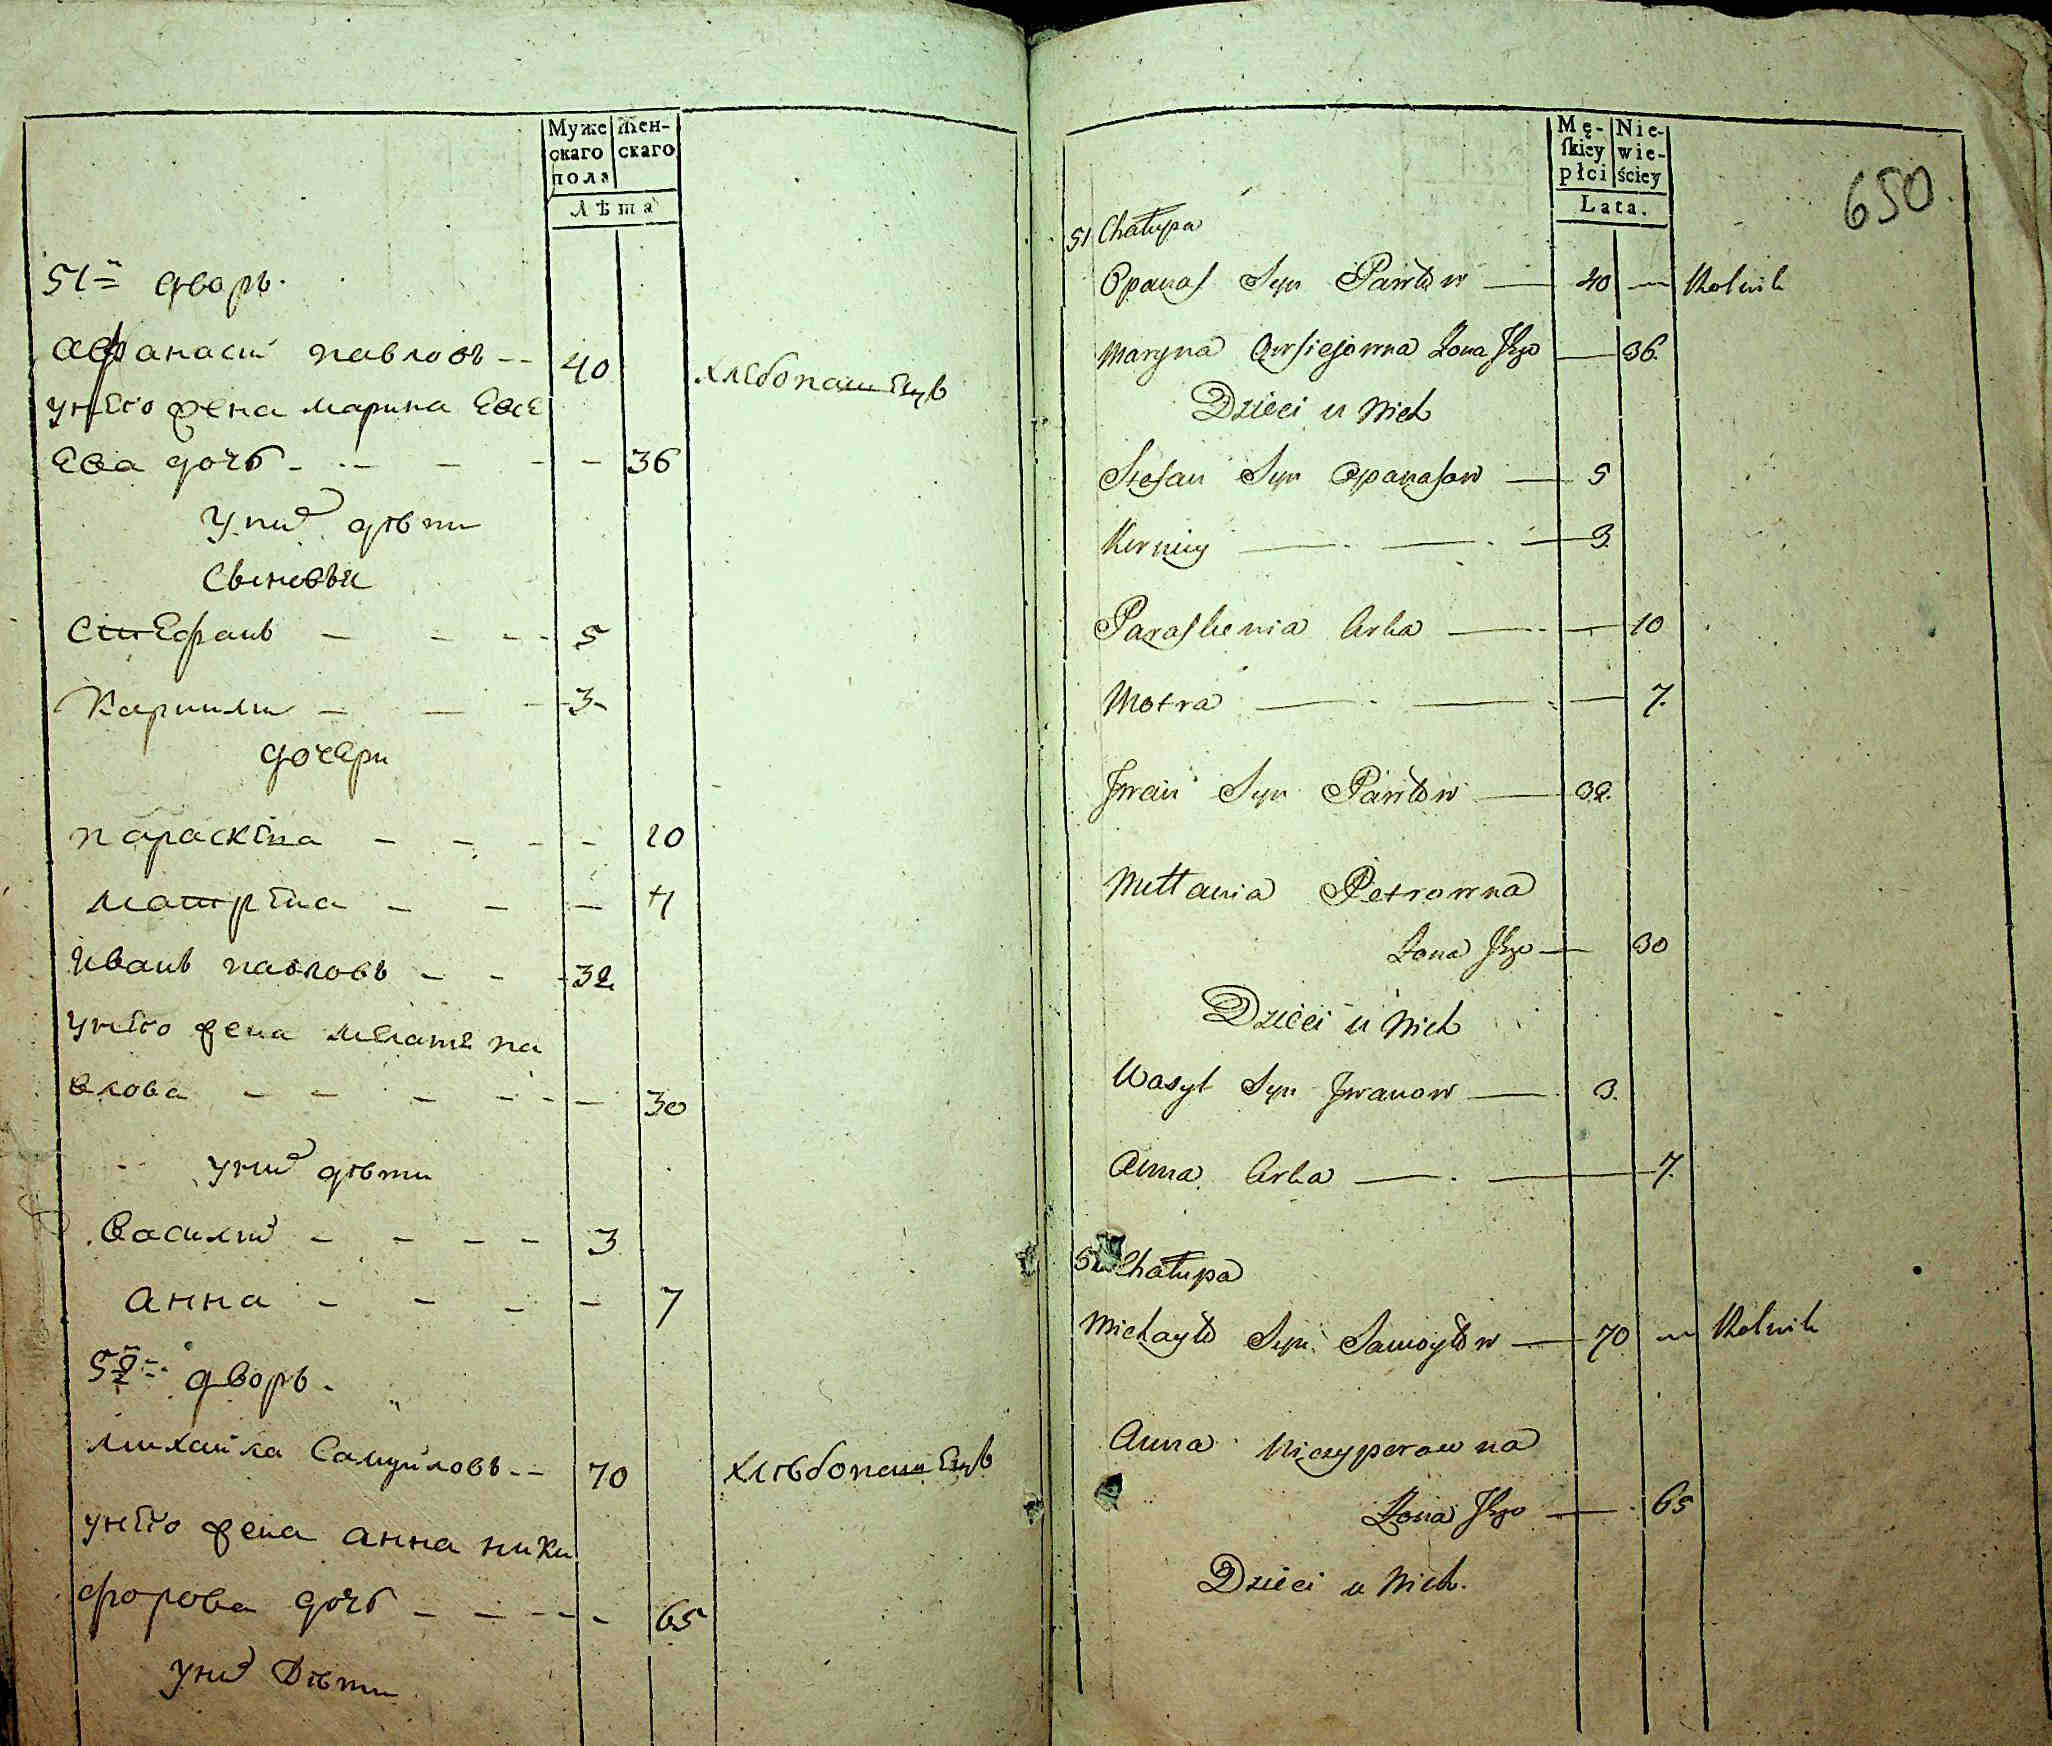 Муже
скаго
пола
жен-
скаго
Лѣта
51й дворъ.
Афанасий павловъ -- 40 хлебопашецъ
у него жена марина Евсе
Ева дочь - - - - - 36
У них дѣти
Сыновьи
Стефанъ - - - - 5
Карнили - - - 3
дочери
параскева - - - - 10
матрена - - - 7
Иванъ павловъ - - - 32
У него жена мелане па
влова - - - - - - 30
у них дѣти
Василий - - - - 3
анна - - - - 7
52й дворъ.
михайла Самуиловъ -- 70 хлѣбопашецъ
у него жена анна ники
форова дочь - - - - - 65
у них Дѣти
Mę-
skiey
płci
Nie-
wie-
ściey
Lata.
650.
51 Chałupa
Opanas Syn Pawłów — 40 — Rolnik
Maryna Owsiejowna Zona Jego — 36.
Dzieci u Nich
Stefan Syn Opanasow — 5
Kerniey — . — . — 3.
Paraskewia Corka — . — 10
Motra — . — . — 7.
Jwan Syn Pawłów — 32.
Mełłania Petrowna
Zona Jego — 30
Dzieci u Nich
Wasyl Syn Jwanow — 3.
Anna Corka — . — 7.
52 Chałupa
Michayło Syn Samoyłow — 70 — Rolnik
Anna Niczyperowna
Zona Jego — . 65
Dzieci u Nich.